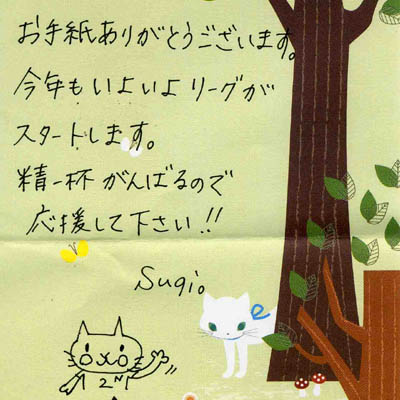 お手紙ありがとうございます。
今年もいよいよリーグが
スタートします。
精一杯がんばるので
応援して下さい!!
Sugi。